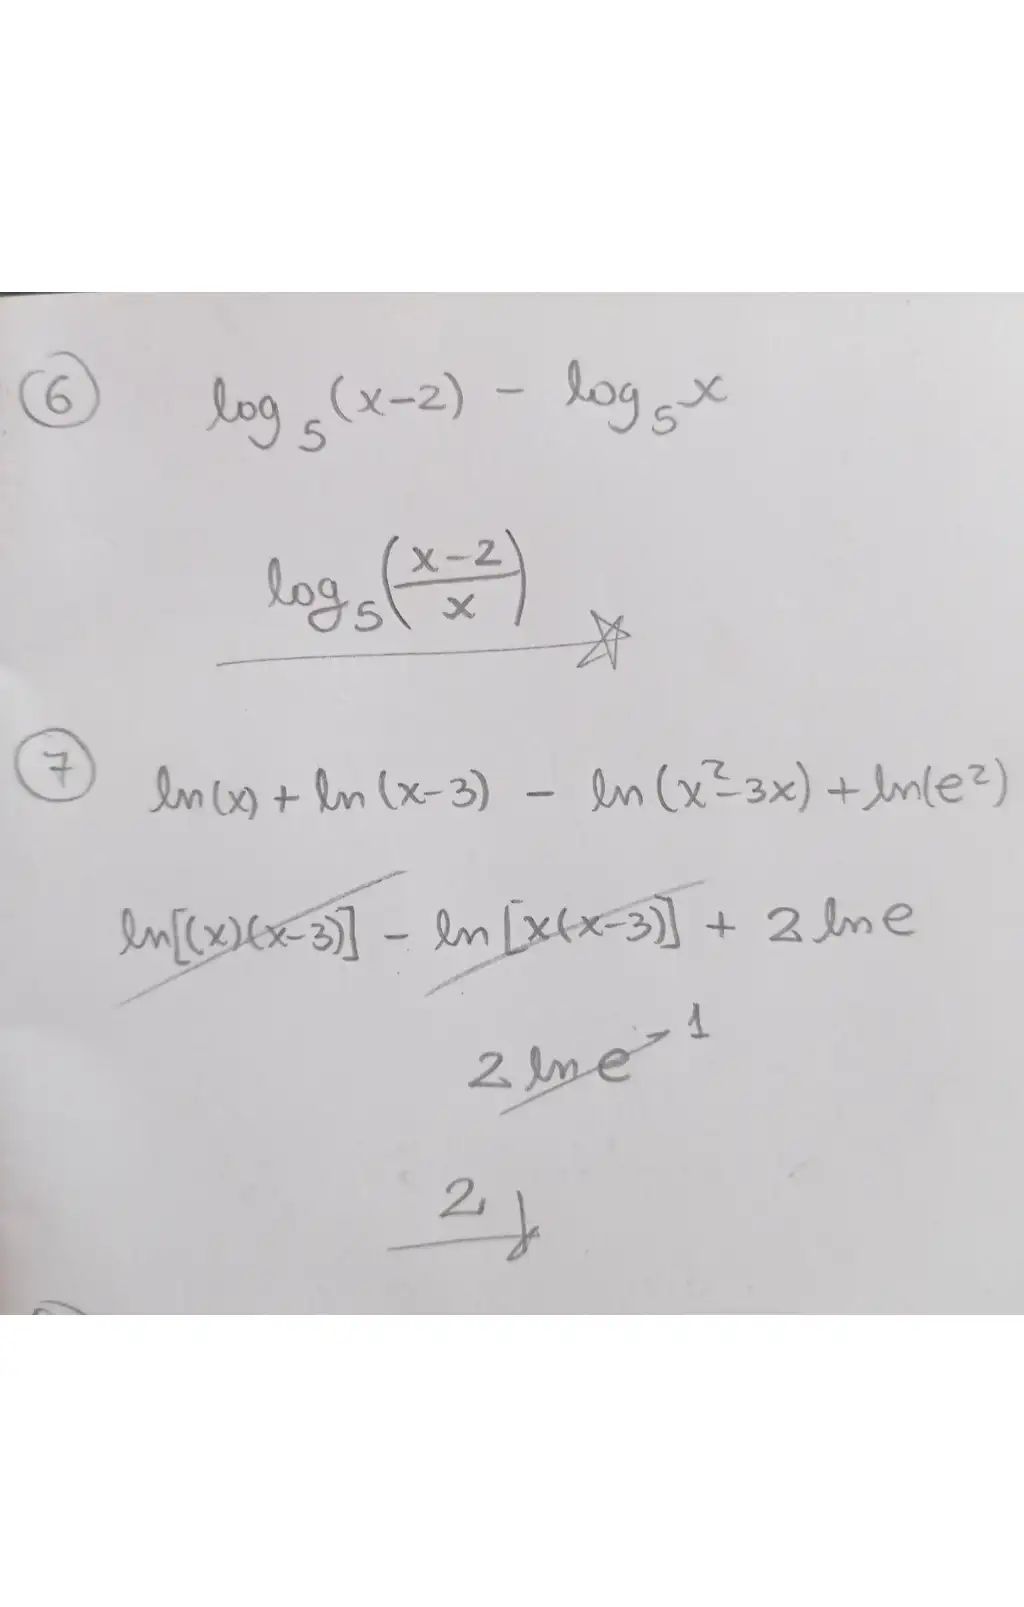 6 log₅(x-2) - log₅x
log₅((x-2)/x)
7 ln(x) + ln(x-3) - ln(x²-3x) + ln(e²)
ln[(x)(x-3)] - ln[x(x-3)] + 2 ln e
2 ln e → 1
2